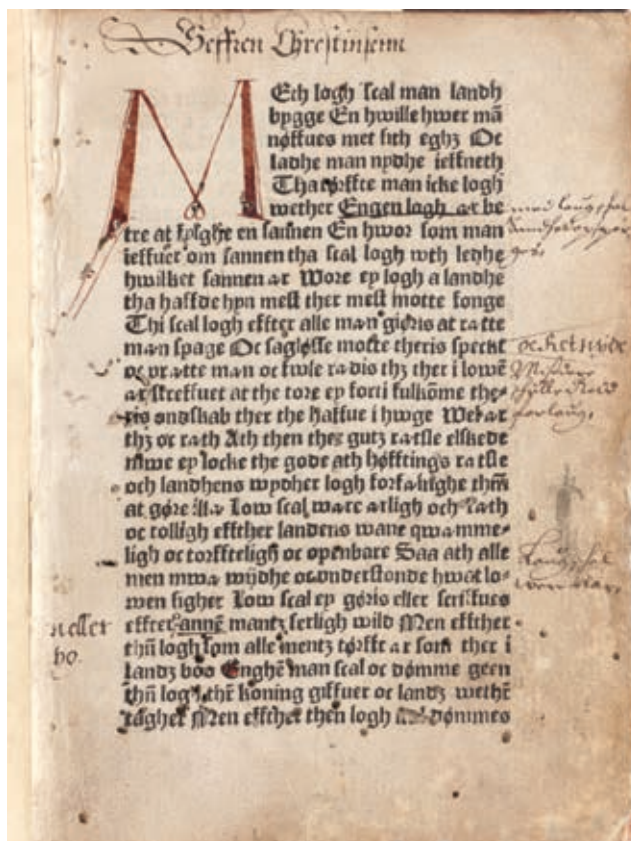 Seffren Chrestinsenn
MEth logh scal man landh
bygge En hwille hwer mā
nøffues met sith eghz Oc
ladhe man nydhe ieffneth
Tha tørffte man icke logh
wether Engen logh ær be
tre at følghe en sannen En hwor som man
ieffuer om sannen tha scal logh wth ledhe
hwilket sannen ær Wore ey logh a landhe
tha haffde hyn mest ther mest motte fonge
Thi scal logh effter alle man giøris at rætte
mæn spage Oc sagløsse motte theris spect
oc vrætte mæn oc twle rædis thz ther i lowē
ær streffuet at the tore ey forti fulkōme the-
ris ondskab ther the haffue i hwge Wel ær
thz oc ræth Ath then thes gutz rætsle elskede
mwe ey locke the gode ath høfftings rætsle
och landhens wydher logh forfæ
at gøre illæ Low scal wære ærligh och ræth
oc tolligh effther landens wane qwæmme-
ligh oc torffteligh oc openbare Saa ath alle
men mwæ wijdhe oc onderstonde hwat lo-
wen sigher Low scal ey gøris eller scriffues
effter annē mantz serligh wild Men effther
thn̄ logh som alle mentz tørfft ær som ther i
landz boo Enghē man scal oc dømme geen
thn̄ logh thr̄ koning giffuer oc landz wethr̄
tagher Men effther then logh dømmes